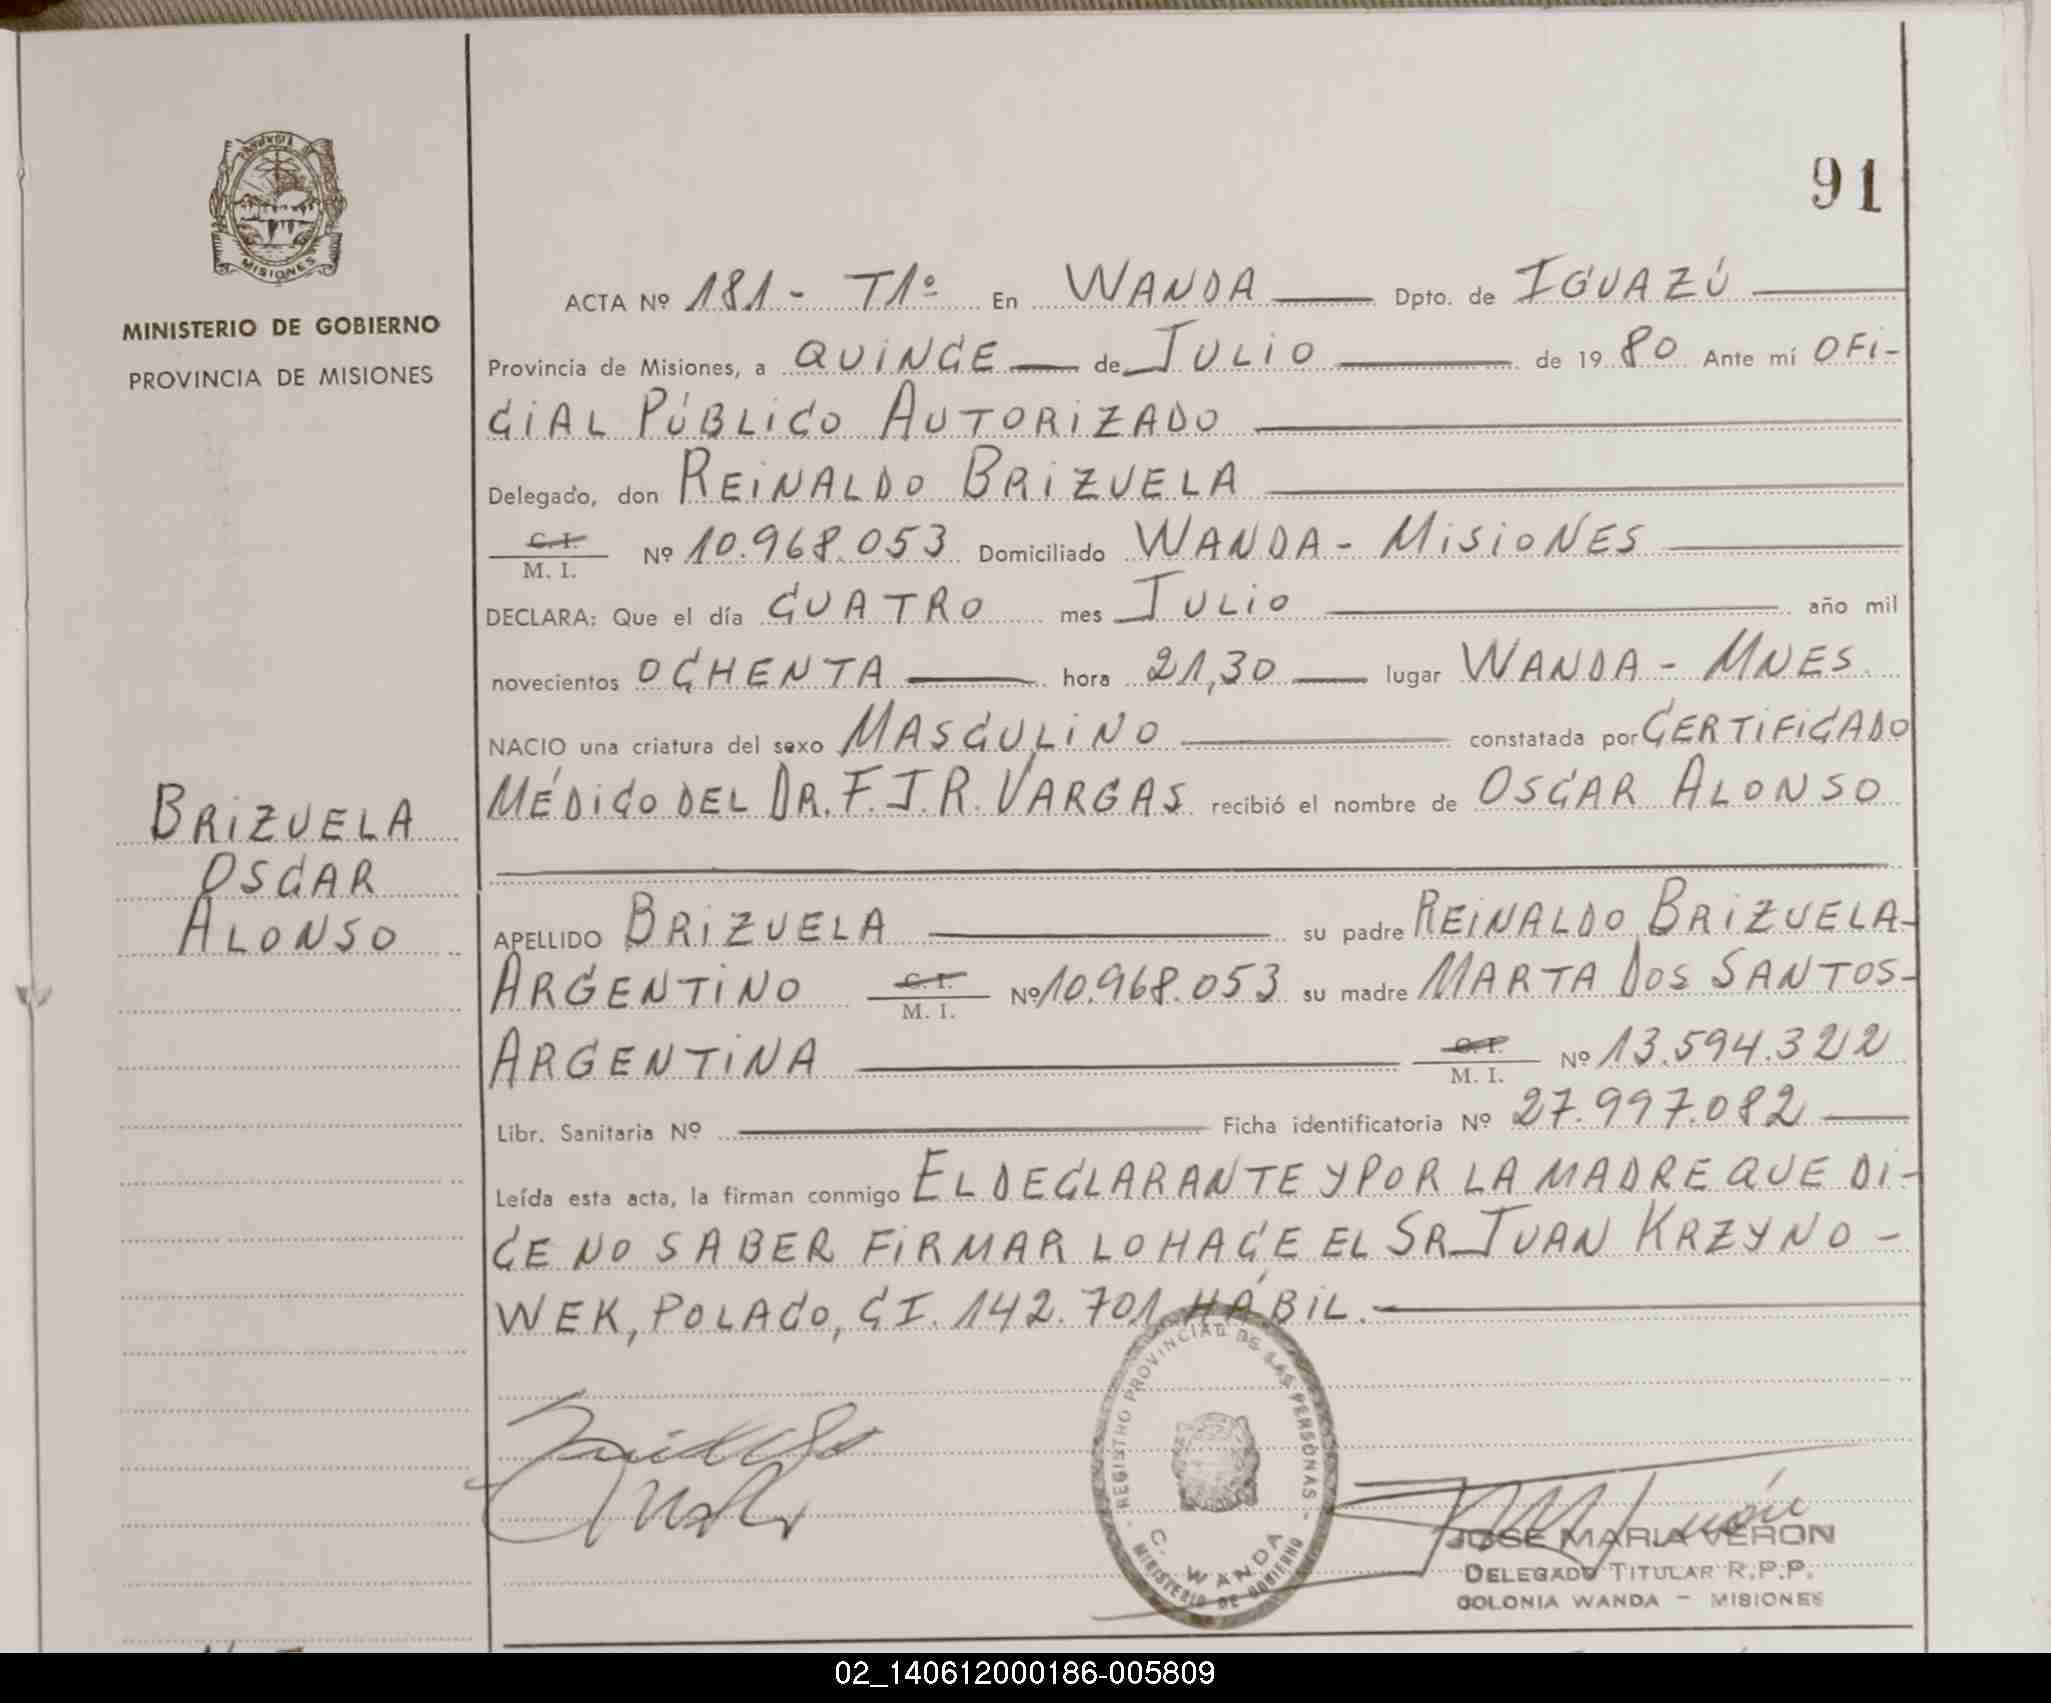 91
MISIONES
MINISTERIO DE GOBIERNO
PROVINCIA DE MISIONES
ACTA Nº 181 - T1º En WANDA Dpto. de IGUAZÚ
Provincia de Misiones, a QUINCE de JULIO de 1980 Ante mí OFI-
CIAL PÚBLICO AUTORIZADO
Delegado, don REINALDO BRIZUELA
C. I.
M. I. Nº 10.968.053 Domiciliado WANDA - MISIONES
DECLARA: Que el día CUATRO mes JULIO año mil
novecientos OCHENTA hora 21,30 lugar WANDA - MNES.
NACIO una criatura del sexo MASCULINO constatada por CERTIFICADO
MÉDICO DEL DR. F. J. R. VARGAS recibió el nombre de OSCAR ALONSO
BRIZUELA
OSCAR
ALONSO
APELLIDO BRIZUELA su padre REINALDO BRIZUELA-
ARGENTINO C. I. M. I. Nº 10.968.053 su madre MARTA DOS SANTOS-
ARGENTINA C. I. M. I. Nº 13.594.322
Libr. Sanitaria Nº Ficha identificatoria Nº 27.997.082
Leída esta acta, la firman conmigo EL DECLARANTE Y POR LA MADRE QUE DI-
CE NO SABER FIRMAR LO HACE EL SR. JUAN KRZYNO-
WEK, POLACO, CI. 142.701, HÁBIL.
REGISTRO PROVINCIAL DE LAS PERSONAS
C. WANDA
MINISTERIO DE GOBIERNO
JOSE MARIA VERON
DELEGADO TITULAR R.P.P.
COLONIA WANDA - MISIONES
02_140612000186-005809